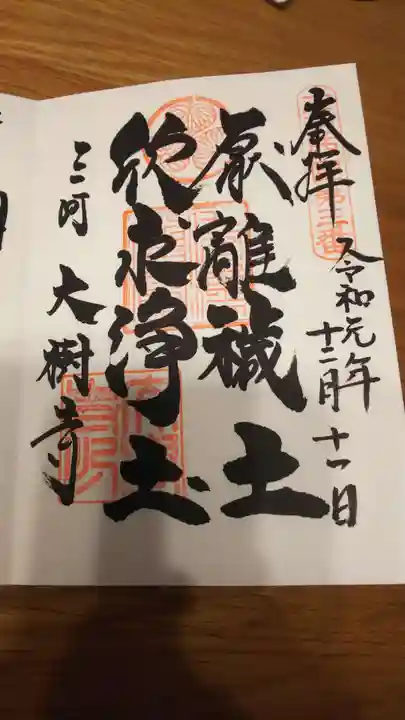 奉拝
令和元年
十二月十一日
厭離穢土
欣求浄土
三河 大樹寺